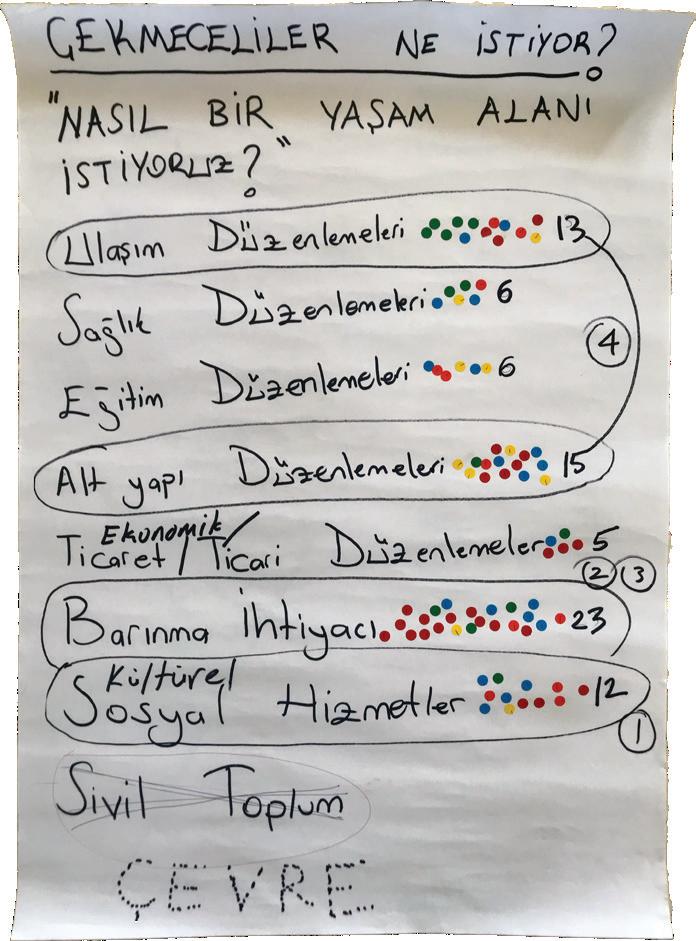 ÇEKMECELİLER NE İSTİYOR?
"NASIL BİR YAŞAM ALANI
İSTİYORUZ?"
Ulaşım Düzenlemeleri 13
Sağlık Düzenlemeleri 6
4
Eğitim Düzenlemeleri 6
Alt yapı Düzenlemeleri 15
Ekonomik /
Ticaret / Ticari Düzenlemeler 5
2 3
Barınma İhtiyacı 23
Kültürel
Sosyal Hizmetler 12
1
Sivil Toplum
ÇEVRE